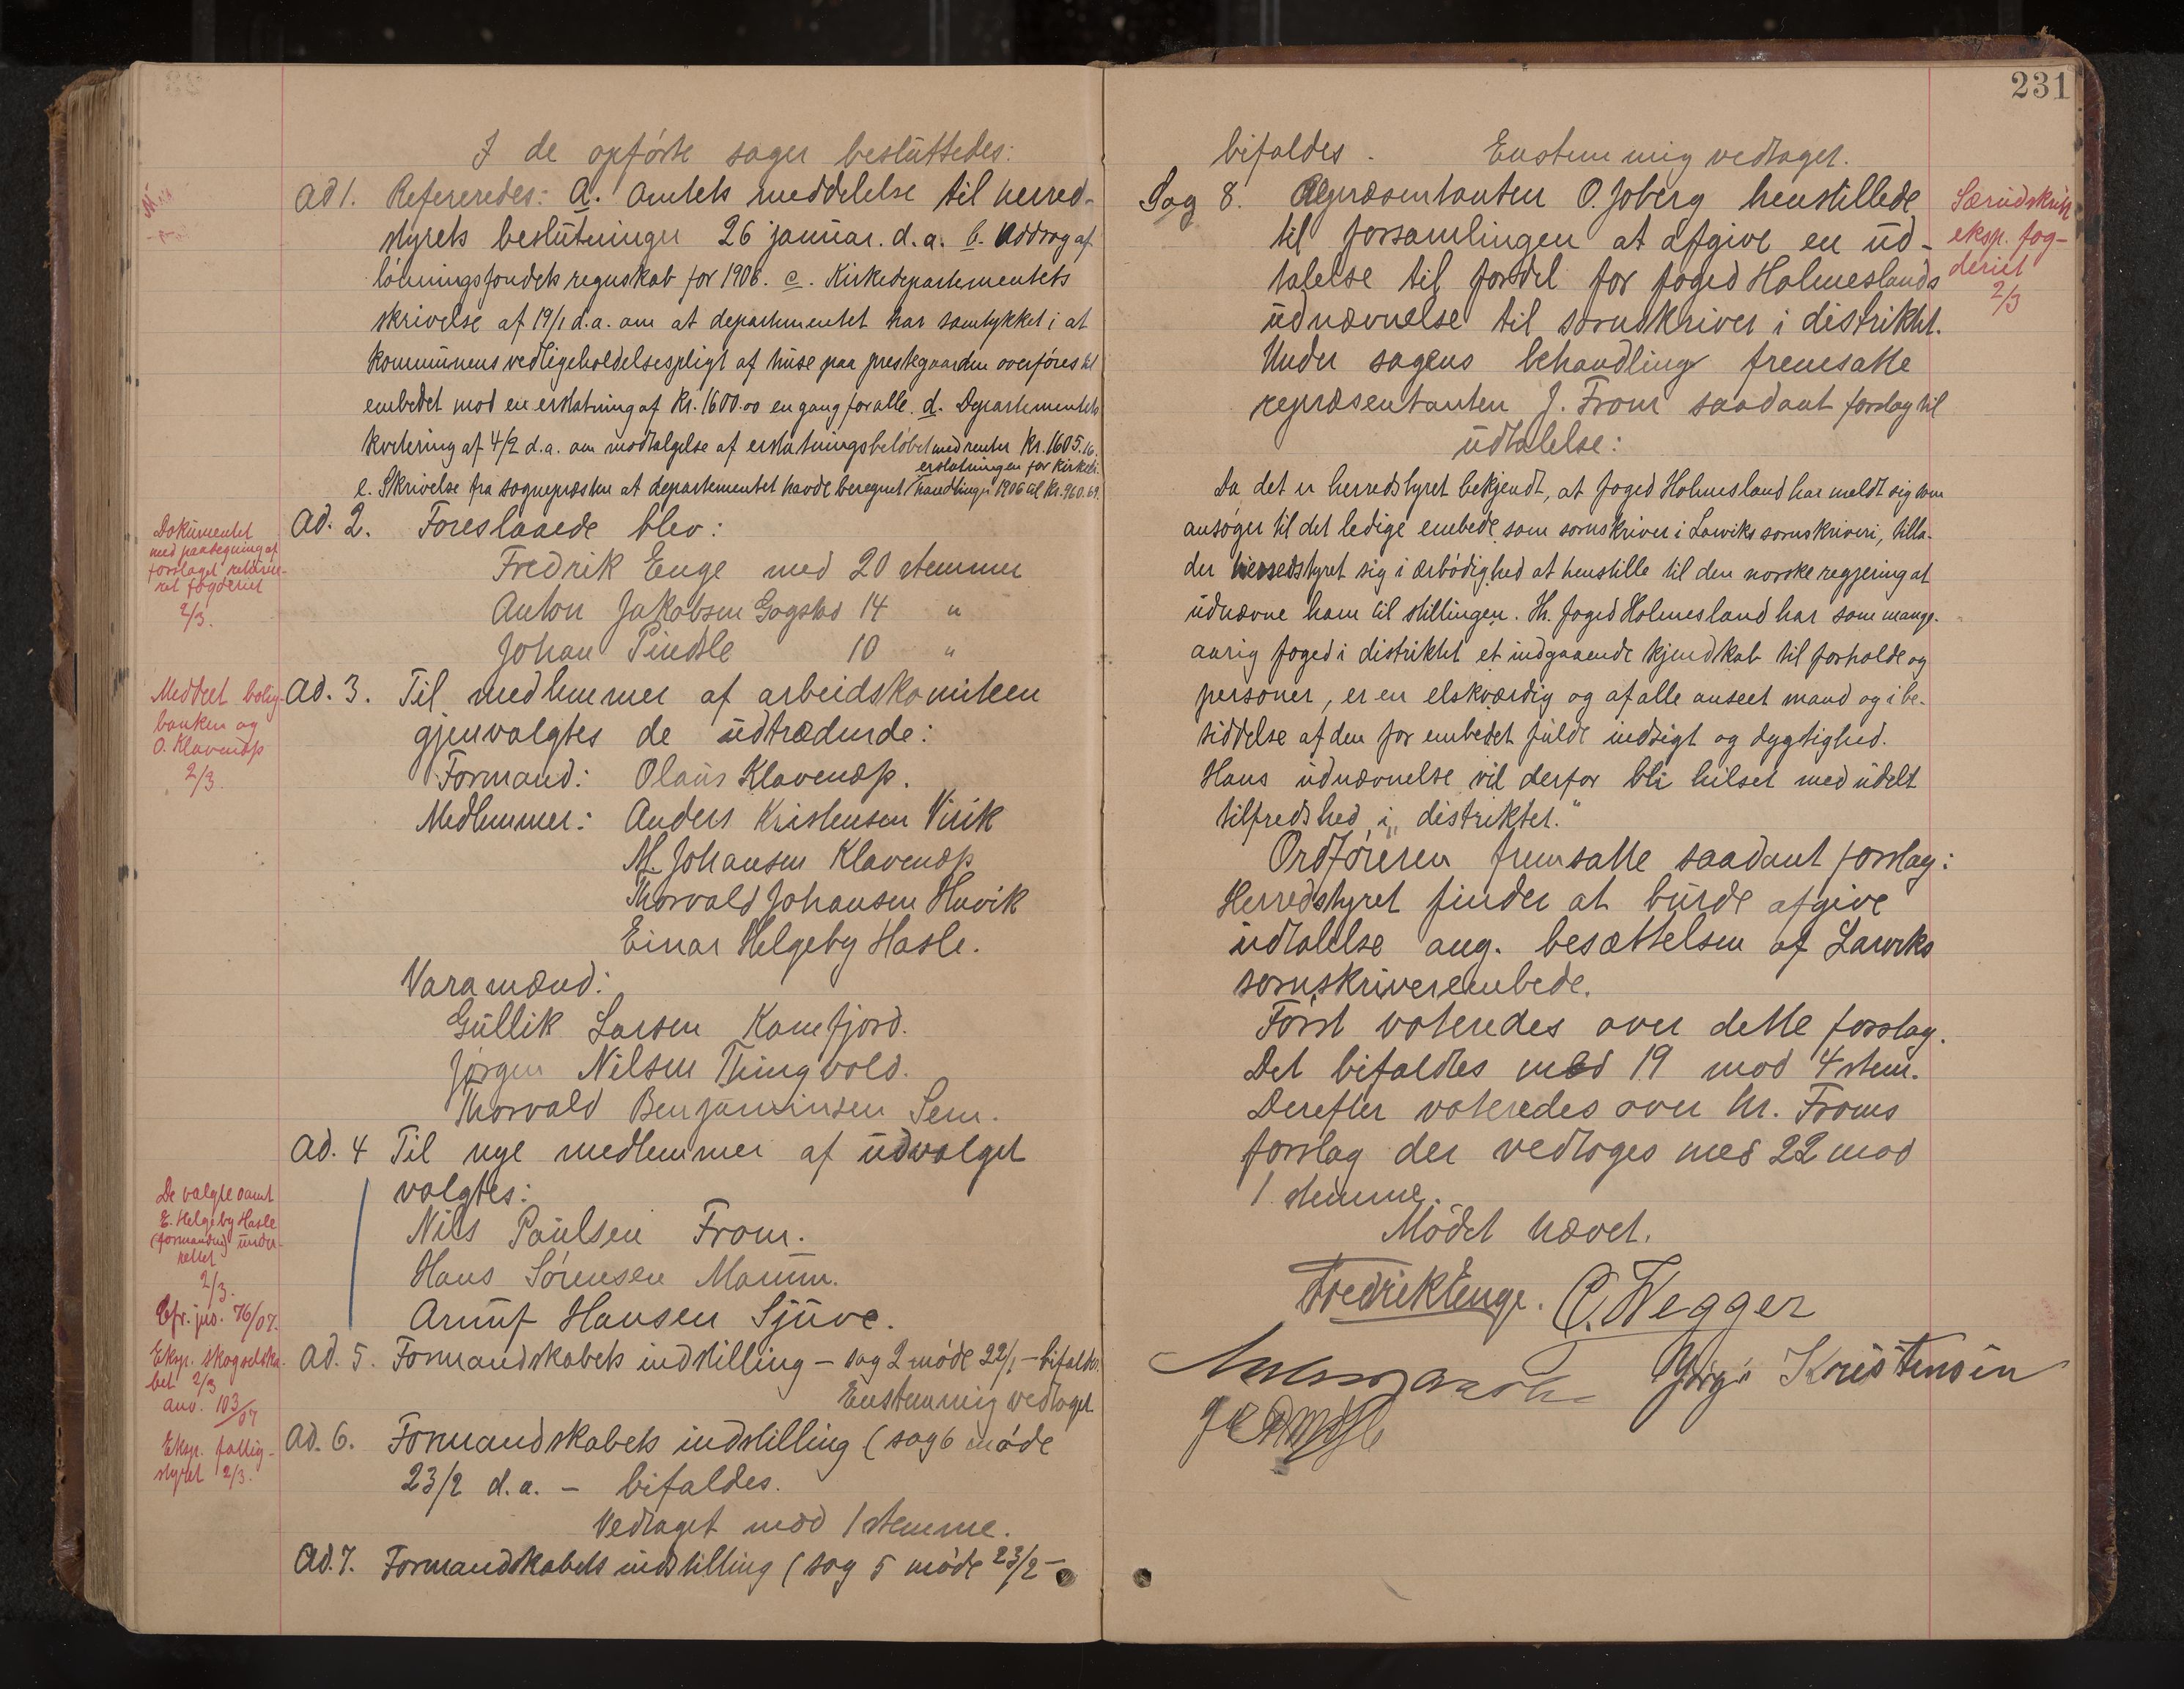 I de opförte sager beslüttedes:
Ad 1. Refereredes: a. Amtets meddelelse til herred-
styrets beslütninger 26 januar. d.a. b. Uddrag af
lönningsfondets regnskab for 1906. c. Kirkedepartementets
skrivelse af 19/1 d.a. om at departementet har samtykket i at
kommünens vedligeholdelsespligt af hüse paa prestegaarden overföres til
embedet mod en erstatning af Kr. 1600.00 en gang for alle. d. Departementets
kvitering af 4/2 d.a. om modtalgelse af erstatningsbelöbet med renter Kr. 1605.16.
erstatningen for kirkeli.
e. Skrivelse fra sognepresten at departementet havde beregnet handlinger 1906 til Kr. 960.69.
Dokümentet
med paategning af
forslaget retürne-
ret fogderiet
2/3.
Ad. 2. Foreslaaede blev:
Fredrik Enge med 20 stemmer
Anton Jakobsen Gogstad 14 "
Johan Pindsle 10 "
Meddelt bolig-
banken og
O. Klavenæs
2/3.
Ad. 3. Til medlemmer af arbeidskomiteen
gjenvalgtes de üdtrædende:
Formand: Olaüs Klavenæs.
Medlemmer: Anders Kristensen Virik
M. Johansen Klavenæs
Thorvald Johansen Huvik
Einar Helgeby Hasle.
Varamænd:
Güllik Larsen Kamfjord.
Jörgen Nilsen Thingvold.
Thorvald Benjaminsen Sem.
Ad. 4 Til nye medlemmer af üdvalget
valgtes:
De valgte samt
E. Helgeby Hasle
(formanden) ünder-
rettet
2/3.
Cfr. jno. 76/07.
Nils Paülsen From.
Hans Sörensen Marum.
Arnüf Hansen Sjüve.
Eksp. skogselska-
bet 2/3
anv. 103/07
Ad. 5. Formandskabets indstilling – sag 2 möde 22/1 – bifaldes.
Enstemmig vedtaget.
Eksp. fattig-
styret 2/3.
Ad. 6. Formandskabets indstilling (sag 6 möde
23/2 d.a. – bifaldes.
Vedtaget mod 1 stemme.
Ad. 7. Formandskabets indstilling (sag 5 möde 23/2 –
231
bifaldes. Enstemmig vedtaget.
Særüdskrift
eksp. fog-
deriet
2/3
Sag 8. Repræsentanten O. Joberg henstillede
til forsamlingen at afgive en üd-
talelse til fordel for foged Holmeslands
üdnævnelse til sorenskriver i distriktet.
Under sagens behandling fremsatte
repræsentanten J. From saadant forslag til
üdtalelse:
Da det er herredstyret bekjendt, at foged Holmesland har meldt sig som
ansöger til det ledige embede som sorenskriver i Larviks sorenskriveri, tilla-
der herredstyret sig i ærbödighed at henstille til den norske regjering at
üdnævne ham til stillingen. Hr. foged Holmesland har som mange-
aarig foged i distriktet et indgaaende kjendskab til forholde og
personer, er en elskværdig og af alle anseet mand og i be-
siddelse af den for embedet fülde indsigt og dygtighed.
Hans üdnævnelse vil derfor bli hilset med üdelt
tilfredshed i distriktet."
Ordföreren fremsatte saadant forslag:
Herredstyret finder at bürde afgive
üdtalelse ang. besættelsen af Larviks
sorenskriverembede.
Först voteredes over dette forslag.
Det bifaldtes med 19 mod 4 stem.
Derefter voteredes over hr. Froms
forslag der vedtoges med 22 mod
1 stemme.
Mödet hævet.
Fredrik Enge. C. Wegger
Kristensen